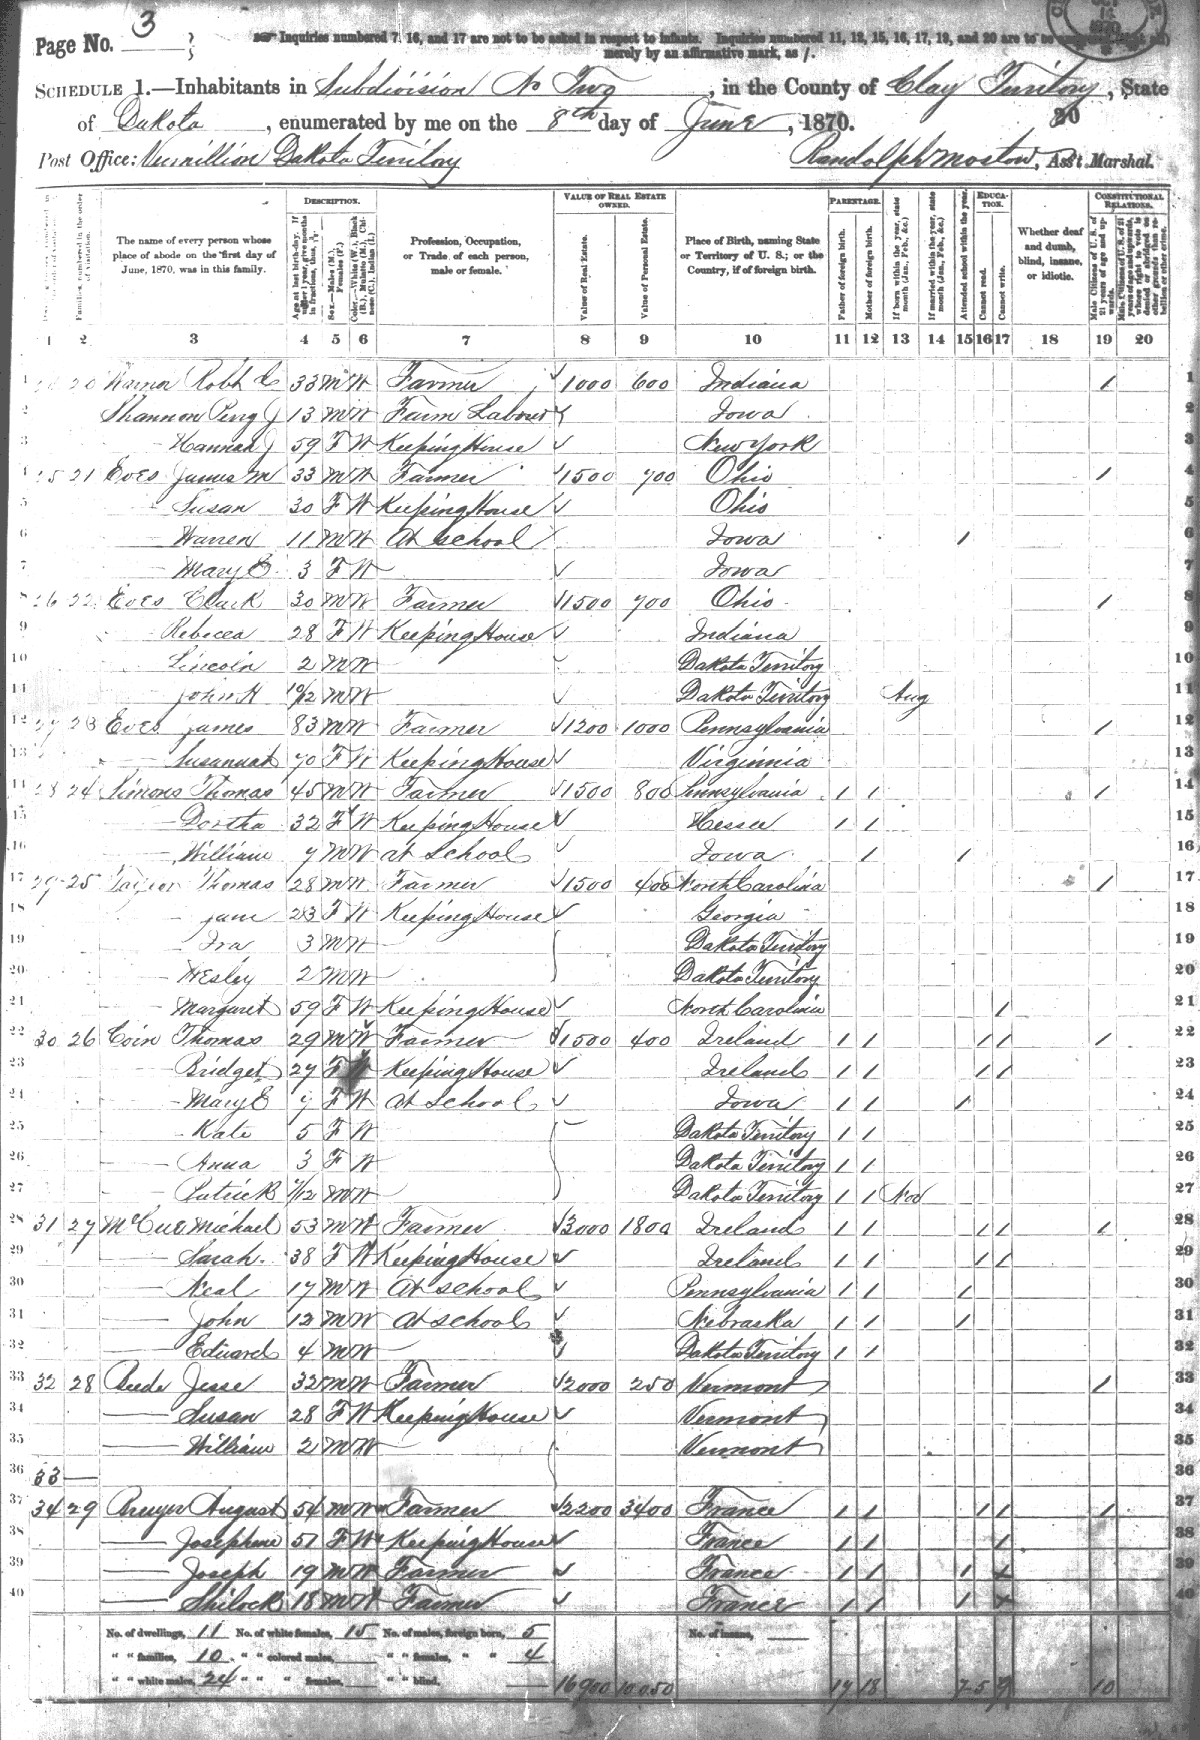 Page No. 3
Inquiries numbered 7, 16, and 17 are not to be asked in respect to infants. Inquiries numbered 11, 12, 15, 16, 17, 19, and 20 are to be
merely by an affirmative mark, as /.
SCHEDULE 1.—Inhabitants in Subdivision No Two, in the County of Clay Territory, State
of Dakota, enumerated by me on the 8th day of June, 1870.
Post Office: Vermillion Dakota Territory Randolph Ass't Marshal.
DESCRIPTION. VALUE OF REAL ESTATE OWNED. PARENTAGE. EDUCATION. CONSTITUTIONAL RELATIONS.
The name of every person whose place of abode on the first day of June, 1870, was in this family.
Profession, Occupation, or Trade of each person, male or female.
Value of Real Estate.
Value of Personal Estate.
Place of Birth, naming State or Territory of U. S.; or the Country, if of foreign birth.
Father of foreign birth.
Mother of foreign birth.
If born within the year, state month (Jan., Feb., &c.)
If married within the year, state month (Jan., Feb., &c.)
Attended school within the year.
Cannot read.
Cannot write.
Whether deaf and dumb, blind, insane, or idiotic.
1 2 3 4 5 6 7 8 9 10 11 12 13 14 15 16 17 18 19 20
1 20 33 M W Farmer 1000 600 Indiana / 1
2 Shannon 13 M W Farm Laborer Iowa 2
3 — Hannah J 59 F W Keeping House New York 3
4 25 21 Eves James M 33 M W Farmer 1500 700 Ohio / 4
5 — Susan 30 F W Keeping House Ohio 5
6 — Warren 11 M W At school Iowa / 6
7 — Mary E 3 F W — Iowa 7
8 26 22 Eves Clark 30 M W Farmer 1500 700 Ohio / 8
9 — Rebecca 28 F W Keeping House Indiana 9
10 — Lincoln 2 M W — Dakota Territory 10
11 — John H 10/12 M W — Dakota Territory Aug 11
12 27 23 Eves James 83 M W Farmer 1200 1000 Pennsylvania / 12
13 — Susannah 70 F W Keeping House Virginnia 13
14 28 24 Simons Thomas 45 M W Farmer 1500 800 Pennsylvania / / / 14
15 — Dortha 32 F W Keeping House Hesser / / 15
16 — William 7 M W at School Iowa / / 16
17 29 25 Taylor Thomas 28 M W Farmer 1500 400 North Carolina / 17
18 — Jane 23 F W Keeping House Georgia 18
19 — Ira 3 M W — Dakota Territory 19
20 — Wesley 2 M W — Dakota Territory 20
21 — Margaret 59 F W Keeping House North Carolina / 21
22 30 26 Coin Thomas 29 M W Farmer 1500 400 Ireland / / / / / 22
23 — Bridget 27 F W Keeping House Ireland / / / / 23
24 — Mary E 7 F W At School Iowa / / / 24
25 — Kate 5 F W Dakota Territory / / 25
26 — Anna 3 F W Dakota Territory / / 26
27 — Patrick 7/12 M W — Dakota Territory / / Nov 27
28 31 27 McCue Michael 53 M W Farmer 3000 1800 Ireland / / / / / 28
29 — Sarah 38 F W Keeping House Ireland / / / / 29
30 — Neal 17 M W At School Pennsylvania / / / 30
31 — John 12 M W At School Nebraska / / / 31
32 — Edward 4 M W — Dakota Territory / / 32
33 32 28 Beede Jesse 32 M W Farmer 2000 250 Vermont / 33
34 — Susan 28 F W Keeping House Vermont 34
35 — William 2 M W — Vermont 35
36 33 — 36
37 34 29 August 54 M W Farmer 2200 3400 France / / / / / 37
38 — Josephine 51 F W Keeping House France / / / 38
39 — Joseph 19 M W Farmer France / / / 39
40 — Shilock 18 M W Farmer France / / / 40
No. of dwellings, 11 No. of white females, 15 No. of males, foreign born, 5 No. of insane,
" " families, 10 " " colored males, " " females, " " 4
" " white males, 24 " " " females, " " blind, 16900 10050 17 18 7 5 9 10